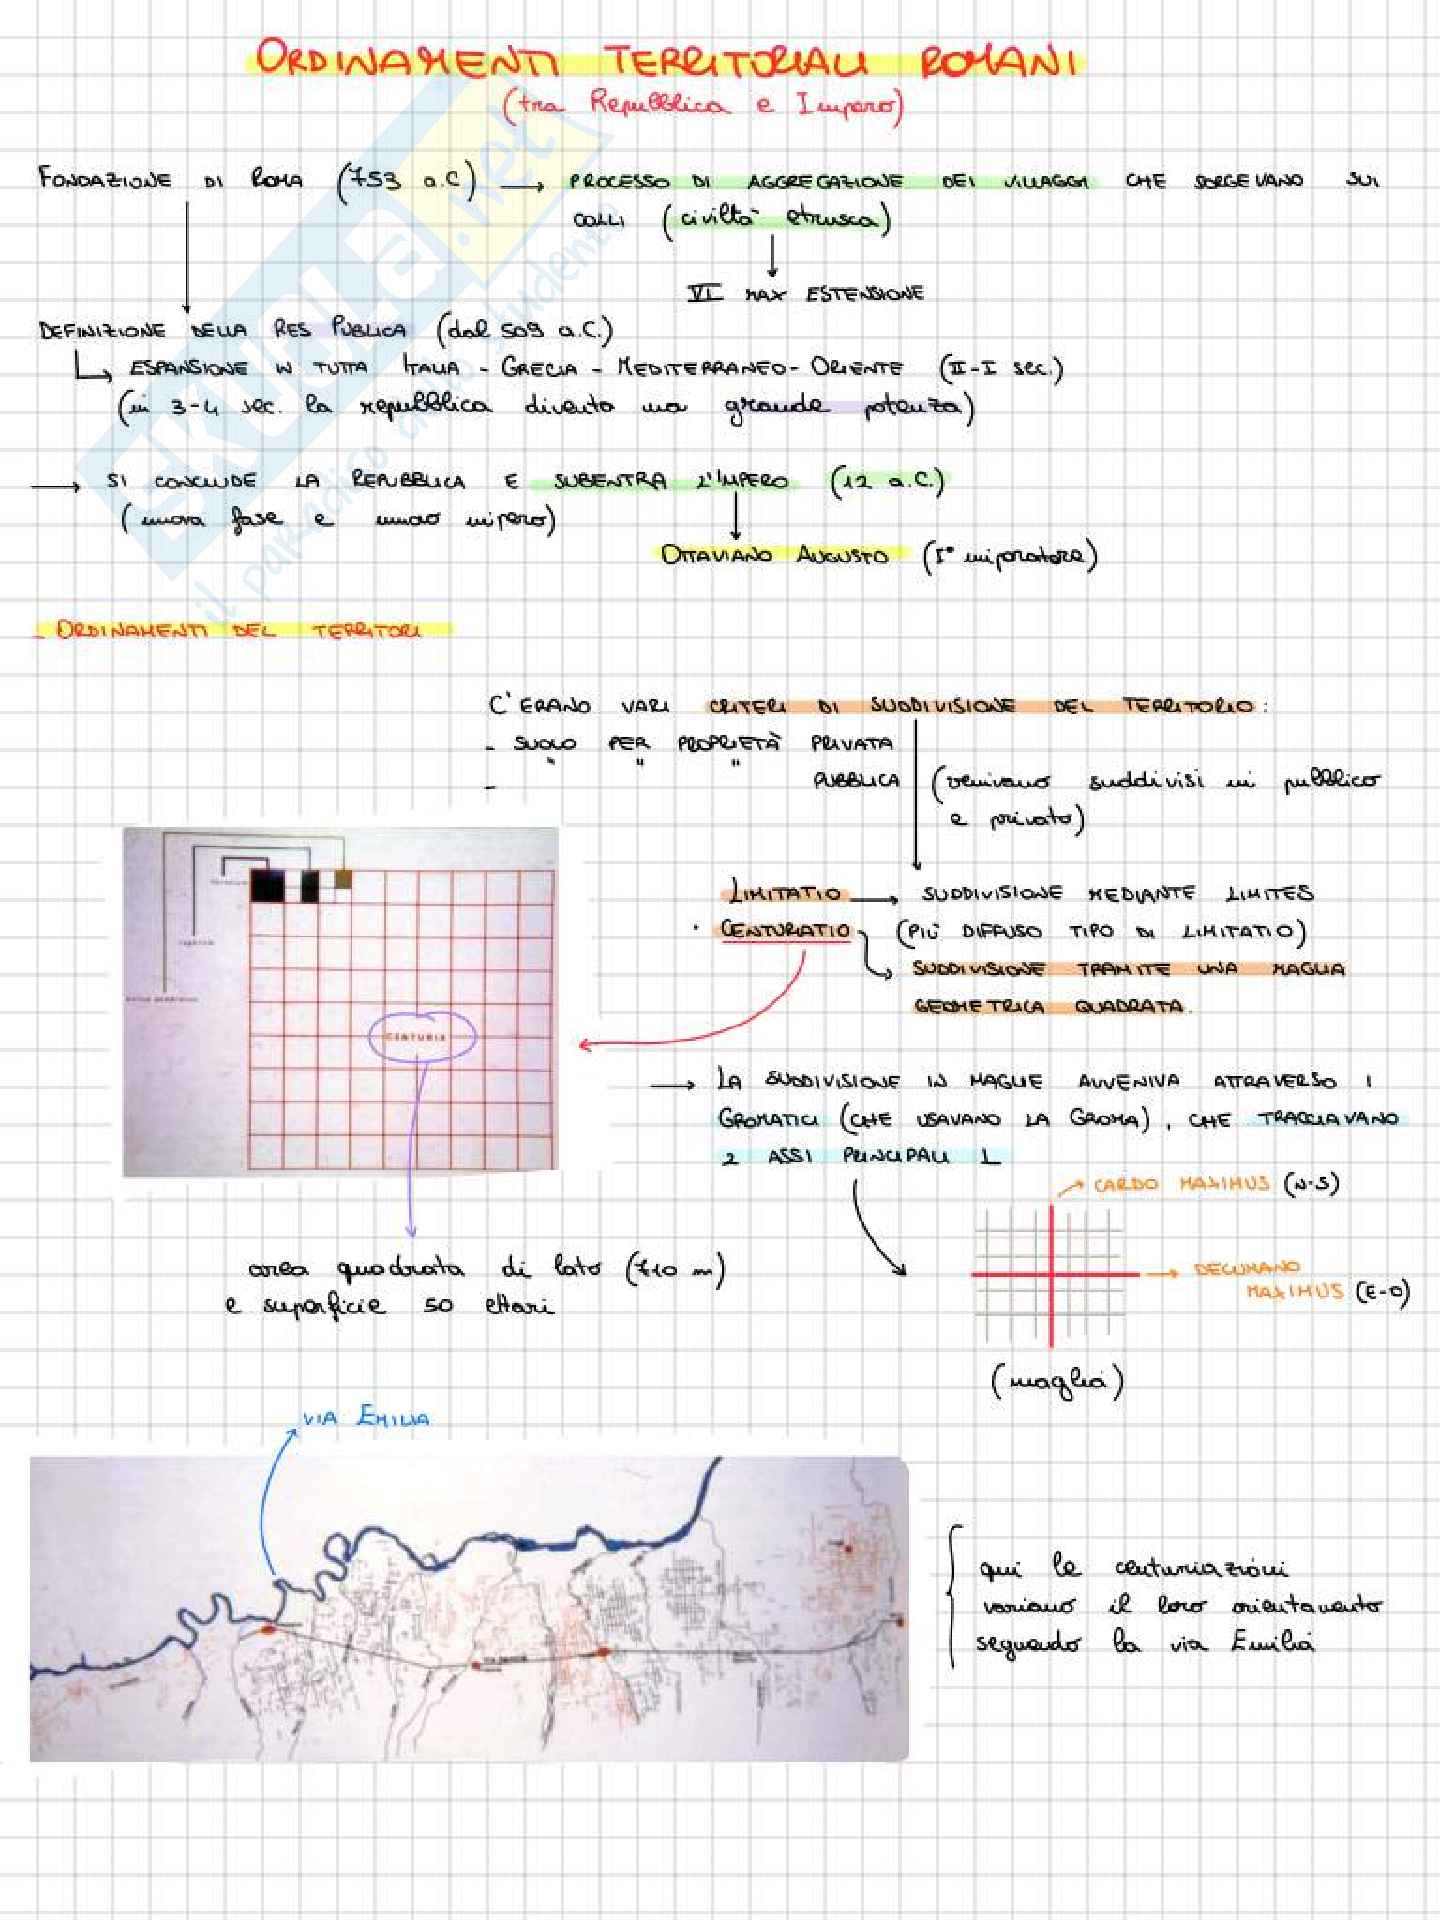 ORDINAMENTI TERRITORIALI ROMANI
(tra Repubblica e Impero)
FONDAZIONE DI ROMA (753 a.C) → PROCESSO DI AGGREGAZIONE DEI VILLAGGI CHE SORGEVANO SUI
COLLI (civiltà etrusca)
VI MAX ESTENSIONE
DEFINIZIONE DELLA RES PUBLICA (dal 509 a.C.)
ESPANSIONE IN TUTTA ITALIA - GRECIA - MEDITERRANEO - ORIENTE (II-I sec.)
(in 3-4 sec. la repubblica diventa una grande potenza)
→ SI CONCLUDE LA REPUBBLICA E SUBENTRA L'IMPERO (12 a.C.)
(nuova fase e nuovo impero)
OTTAVIANO AUGUSTO (I° imperatore)
- ORDINAMENTI DEL TERRITORI
C'ERANO VARI CRITERI DI SUDDIVISIONE DEL TERRITORIO:
- SUOLO PER PROPRIETÀ PRIVATA
- " " " PUBBLICA (venivano suddivisi in pubblico
e privato)
LIMITATIO → SUDDIVISIONE MEDIANTE LIMITES
· CENTURIATIO (PIÙ DIFFUSO TIPO DI LIMITATIO)
SUDDIVISIONE TRAMITE UNA MAGLIA
GEOMETRICA QUADRATA.
CENTURIA
→ LA SUDDIVISIONE IN MAGLIE AVVENIVA ATTRAVERSO I
GROMATICI (CHE USAVANO LA GROMA), CHE TRACCIAVANO
2 ASSI PRINCIPALI L
CARDO MAXIMUS (N-S)
DECUMANO
MAXIMUS (E-O)
(maglia)
area quadrata di lato (710 m)
e superficie 50 ettari
VIA EMILIA
qui le centuriazioni
variano il loro orientamento
seguendo la via Emilia
SKUOLA.net
il paradiso dello studente